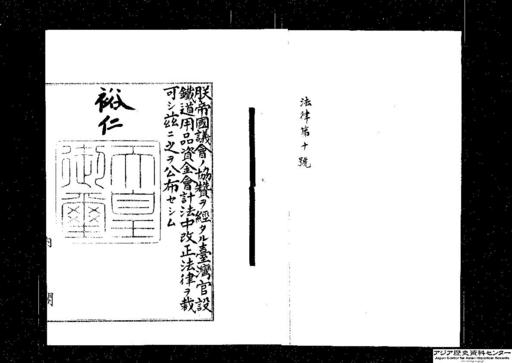 法律第十號
朕帝國議會ノ協贊ヲ經タル臺灣官設
鐵道用品資金會計法中改正法律ヲ裁
可シ茲ニ之ヲ公布セシム
裕仁
天皇
御璽
内
閣
アジア歴史資料センター
Japan Center for Asian Historical Records